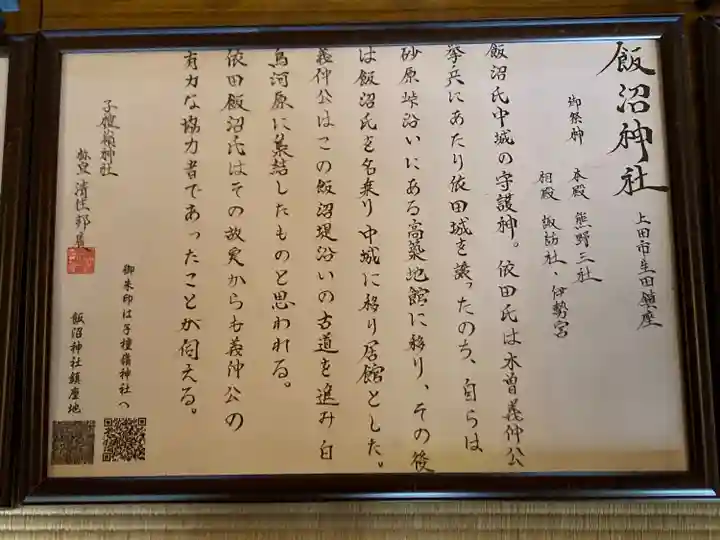 飯沼神社
上田市生田鎮座
御祭神 本殿 熊野三社
相殿 諏訪社・伊勢宮
飯沼氏中城の守護神。依田氏は木曽義仲公
挙兵にあたり依田城を譲ったのち、自らは
砂原峠沿いにある高築地館に移り、その後
は飯沼氏を名乗り中城に移り居館とした。
義仲公はこの飯沼堤沿いの古道を進み白
鳥河原に集結したものと思われる。
依田飯沼氏はその故実からも義仲公の
有力な協力者であったことが伺える。
子檀嶺神社
御朱印は子檀嶺神社へ
飯沼神社鎮座地